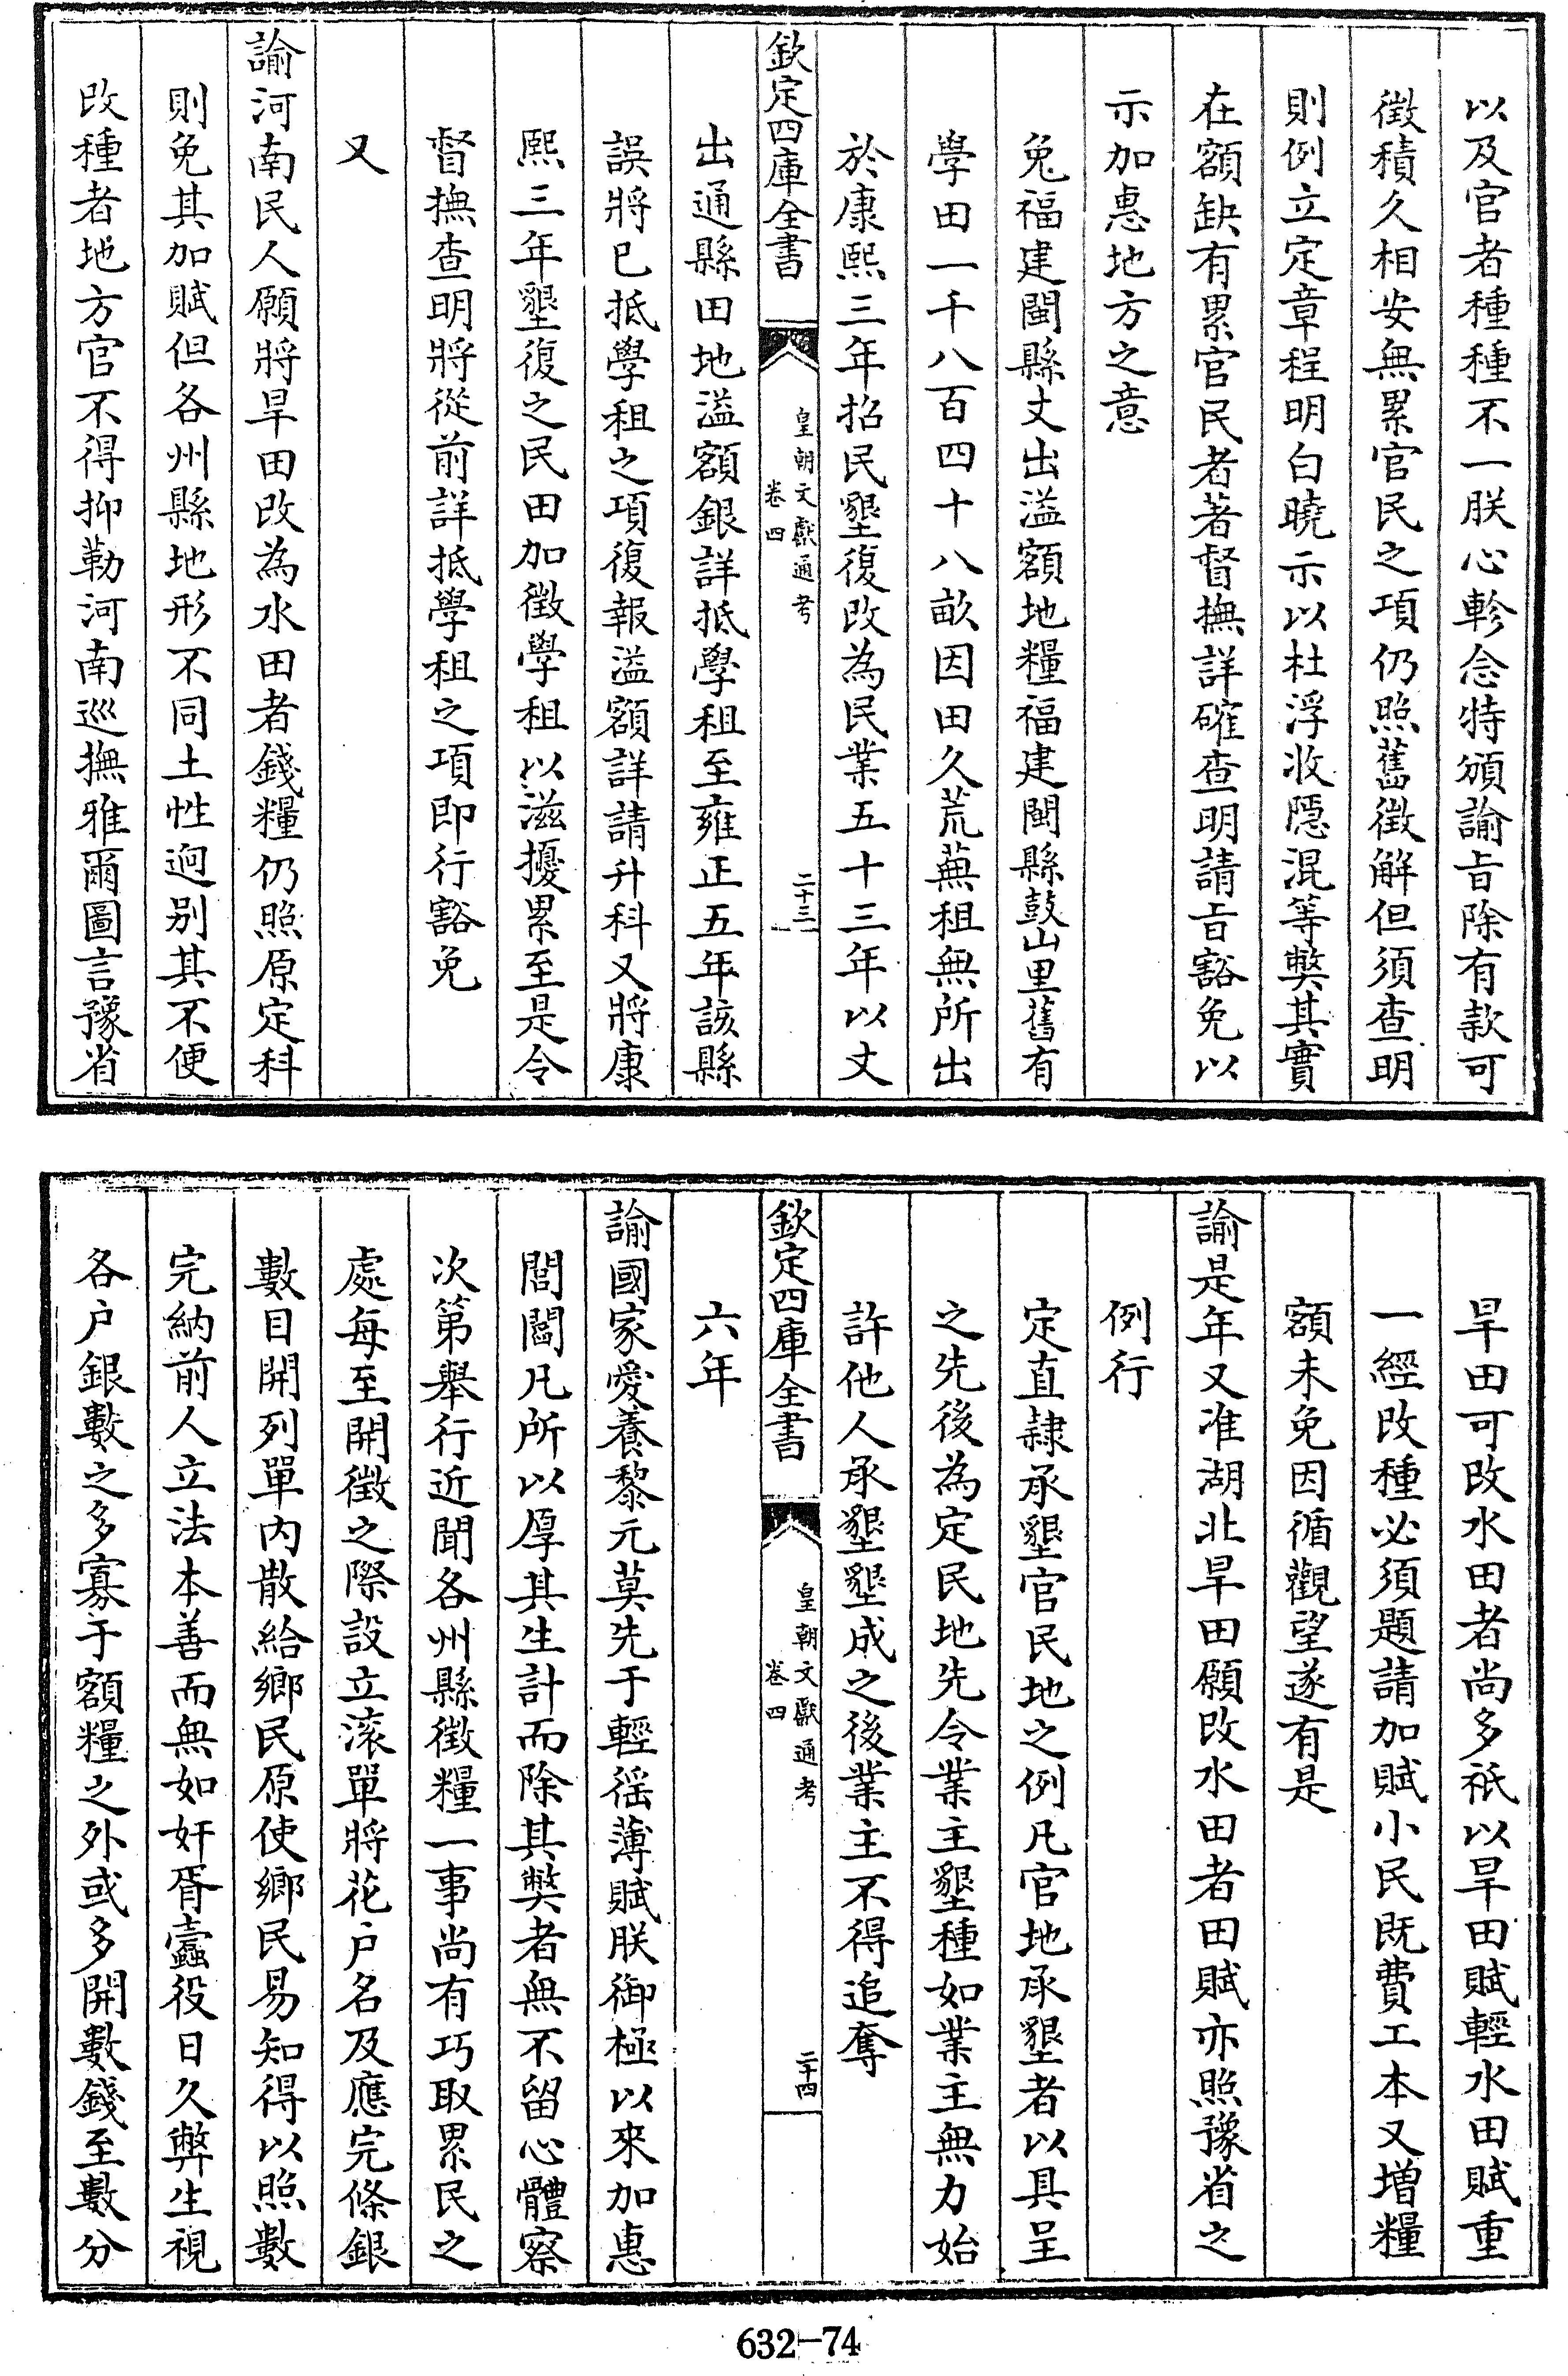 以及官者種種不一朕心軫念特頒諭旨除有款可
徵積久相安無累官民之項仍照舊徵解但須查明
則例立定章程明白曉示以杜浮收隱混等弊其實
在額缺有累官民者著督撫詳確查明請旨豁免以
示加惠地方之意
免福建閩縣丈出溢額地糧福建閩縣鼓山里舊有
學田一千八百四十八畝因田久荒蕪租無所出
於康熙三年招民墾復改為民業五十三年以丈
欽定四庫全書
皇朝文獻通考
卷四
二十三
出通縣田地溢額銀詳抵學租至雍正五年該縣
誤將已抵學租之項復報溢額詳請升科又將康
熙三年墾復之民田加徵學租以滋擾累至是令
督撫查明將從前詳抵學租之項即行豁免
又
諭河南民人願將旱田改為水田者錢糧仍照原定科
則免其加賦但各州縣地形不同土性迥别其不便
改種者地方官不得抑勒河南巡撫雅爾圖言豫省
旱田可改水田者尚多祇以旱田賦輕水田賦重
一經改種必須題請加賦小民既費工本又增糧
額未免因循觀望遂有是
諭是年又准湖北旱田願改水田者田賦亦照豫省之
例行
定直隸承墾官民地之例凡官地承墾者以具呈
之先後為定民地先令業主墾種如業主無力始
許他人承墾墾成之後業主不得追奪
欽定四庫全書
皇朝文獻通考
卷四
二十四
六年
諭國家愛養黎元莫先于輕徭薄賦朕御極以來加惠
閭閻凡所以厚其生計而除其弊者無不留心體察
次第舉行近聞各州縣徵糧一事尚有巧取累民之
處每至開徵之際設立滚單將花户名及應完條銀
數目開列單內散給鄉民原使鄉民易知得以照數
完納前人立法本善而無如奸胥蠧役日久弊生視
各户銀數之多寡于額糧之外或多開數錢至數分
632-74